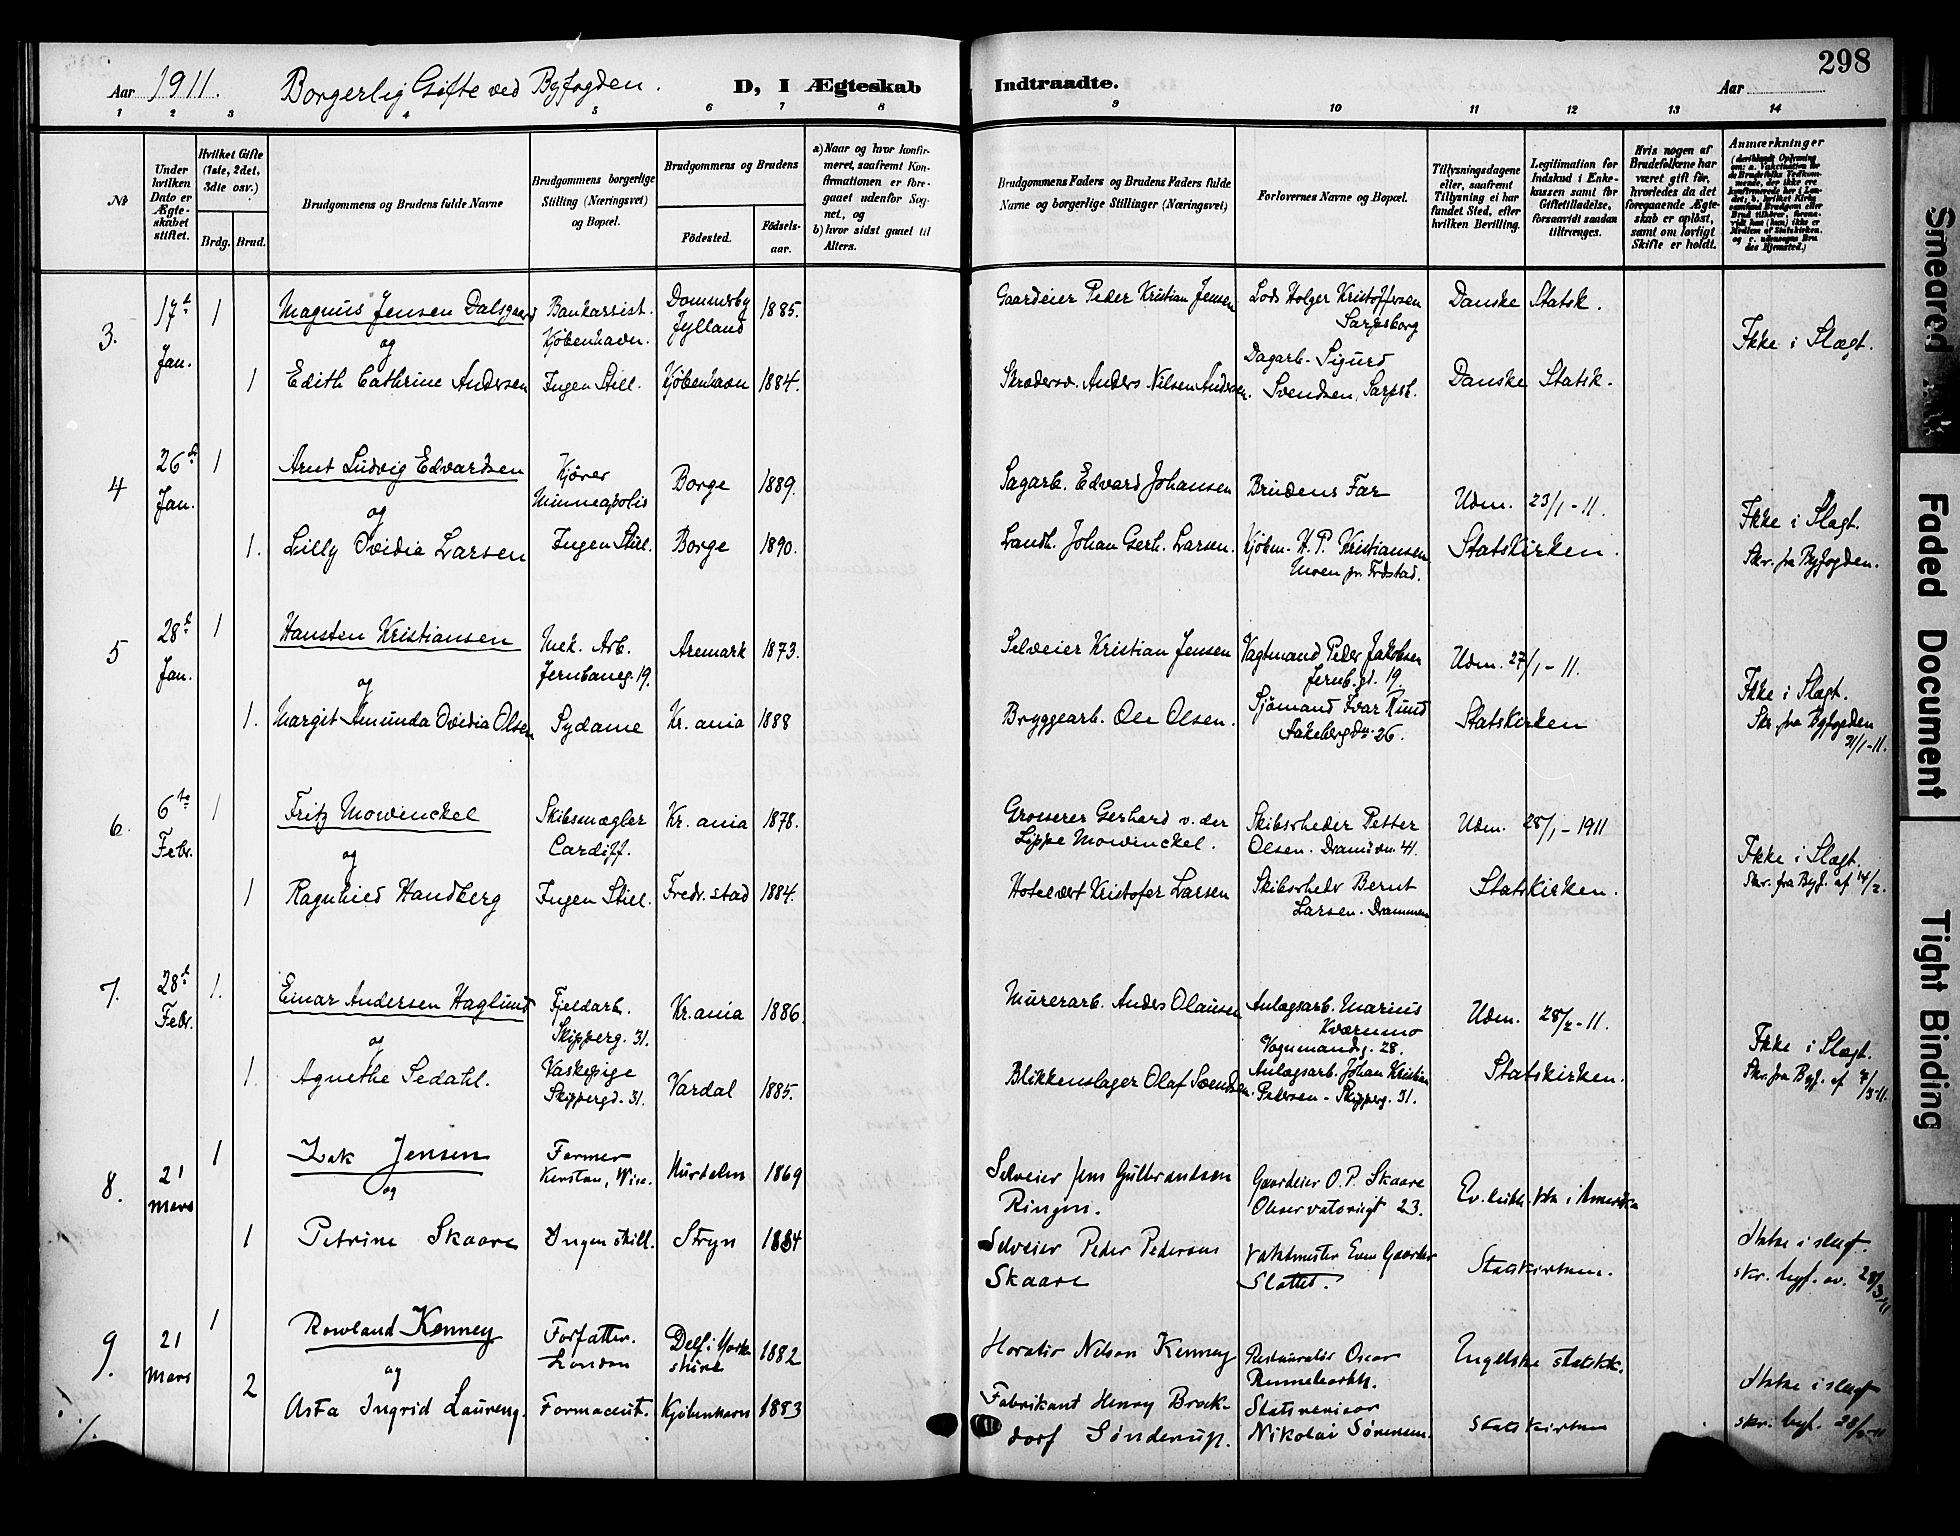 298
Aar 1911. Borgerlig Gifte ved Byfogden. D, I Ægteskab Indtraadte. Aar
1 2 3 4 5 6 7 8 9 10 11 12 13 14
No
Under hvilken Dato er Ægteskabet stiftet.
Hvilket Gifte (1ste, 2det, 3die osv.)
Brdg. Brud.
Brudgommens og Brudens fulde Navne
Brudgommens borgerlige Stilling (Næringsvei) og Bopæl.
Brudgommens og Brudens
Fødested. Fødsels-aar.
a) Naar og hvor konfirmeret, saafremt Konfirmationen er foregaaet udenfor Sognet, og
b) hvor sidst gaaet til Alters.
Brudgommens Faders og Brudens Faders fulde Navne og borgerlige Stillinger (Næringsvei)
Forlovernes Navne og Bopæl.
Tillysningsdagene eller, saafremt Tillysning ei har fundet Sted, efter hvilken Bevilling.
Legitimation for Indskud i Enkekassen samt for Giftetilladelse, forsaavidt saadan tiltrænges.
Hvis nogen af Brudefolkene har været gift før, hvorledes da det foregaaende Ægteskab er opløst, samt om lovligt Skifte er holdt.
Anmærkninger
3. 17de Jan. 1 Magnus Jensen Dalsgaard Bankassist. Kjøbenhavn. Dommerby Jylland 1885. Gaardeier Peder Kristian Jensen Lods Holger Kristoffersen Sarpsborg Danske Statsk.
og
1 Edith Cathrine Andersen Ingen Still. Kjøbenhavn 1884. Skræders. Anders Nilsen Andersen. Dagarb. Sigurd Svendsen, Sarpsb. Danske Statsk. Ikke i Slægt.
4 26de Jan. 1 Arnt Ludvig Edvardsen Kjører Minneapolis Borge 1889. Sagarb. Edvard Johansen Brudens Far Udm. 23/1-11.
og
1. Lilly Ovidia Larsen Ingen Still. Borge 1890. Landh. Johan Gerh. Larsen. Kjøbm. H. P. Kristiansen Moen pr. Frdstad. Statskirken. Ikke i Slægt. Skr. fra Byfogden.
5 28de Jan. 1 Hansten Kristiansen Mek. Arb. Jernbaneg. 19. Aremark 1873. Selveier Kristian Jensen Vagtmand Peder Jakobsen Jernb.gt. 19. Udm. 27/1-11.
og
1. Margit Amunda Ovidia Olsen Sydame Kr.ania 1888 Bryggearb. Ole Olsen. Sjømand Ivar Ruud Aakebergvn. 26. Statskirken Ikke i Slægt. Skr. fra Byfogden 31/1-11.
6. 6te Febr. 1 Fritz Mowinckel Skibsmægler Cardiff. Kr.ania 1878. Grosserer Gerhard v. der Lippe Mowinckel. Skibsrheder Petter Olsen. Dramsvn. 41. Udm. 28/1-1911
og
1 Ragnhild Handberg Ingen Still. Fredr.stad 1884. Hotelvært Kristofer Larsen Skibsrheder Bernt Larsen. Drammen Statskirken. Ikke i Slægt. Skr. fra Byf. af 14/2.
7. 28de Febr. 1. Einar Andersen Haglund Fjeldarb. Skipperg. 31. Kr.ania 1886. Murerarb. Anders Olausen Anlægsarb. Marius Kværnmo Vognmandsg. 28. Udm. 28/2-11.
og
1. Agnethe Sedahl. Vaskepige Skippergd. 31. Vardal 1885. Blikkenslager Olaf Svendsen. Anlægsarb. Johan Kristian Petersen - Skipperg. 31. Statskirken. Ikke i Slægt. Skr. fra Byf. af
8. 21 Mars 1 Isak Jensen Farmer Kenstan, Wisc. Hurdalen 1869 Selveier Jens Gulbrandsen Ringen. Gaardeier O. P. Skaare Observatoriegt 23. Ev. luth. kke i Amerika
og
1 Petrine Skaare Ingen still. Stryn 1884 Selveier Peder Pedersen Skaare Vaktmester Even Gaarder Slottet. Statskirken. Ikke i slegt. skr. byf. av. 28/3 11
9. 21 Mars 1 Rowland Kenney Forfatter. London Delf i Yorkshire 1882 Horatio Nelson Kenney Restauratør Oscar Engelske statskk.
og
2 Asta Ingrid Laureng. Farmaceut. Kjøbenhavn 1883 Fabrikant Henry Brockdorf Sønderup. Statsrevisor Nikolai Sørensen. Statskirken Ikke i slegt skr. byf. 28/3-11
Smeared
Faded Document
Tight Binding